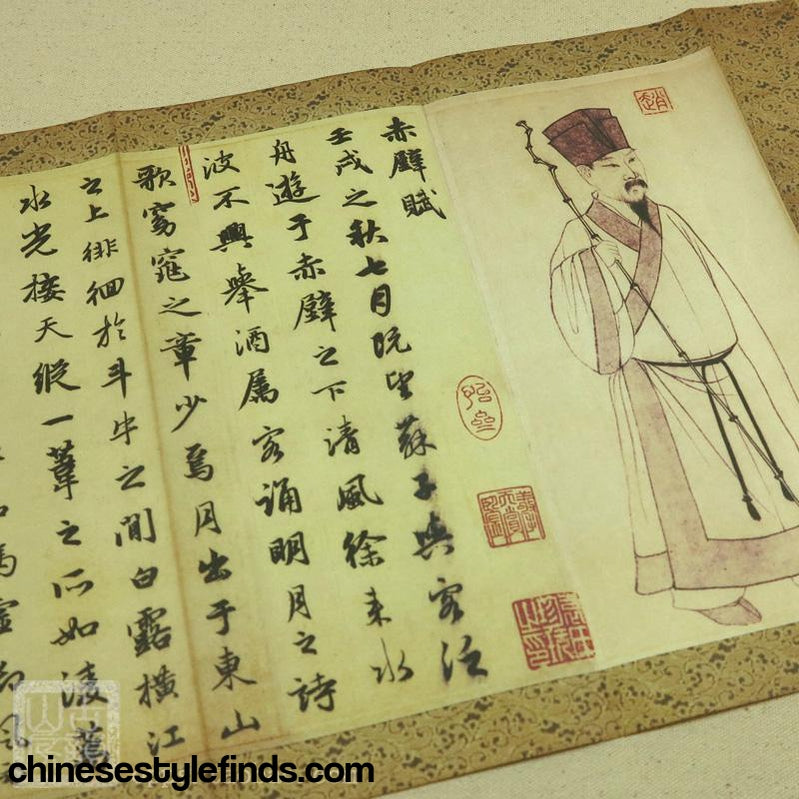 赤壁賦
壬戌之秋七月既望蘇子與客泛
舟遊于赤壁之下清風徐来水
波不興舉酒属客誦明月之詩
歌窈窕之章少焉月出于東山
之上徘徊於斗牛之間白露横江
水光接天縱一葦之所如凌萬
馮虚御風
chinesestylefinds.com